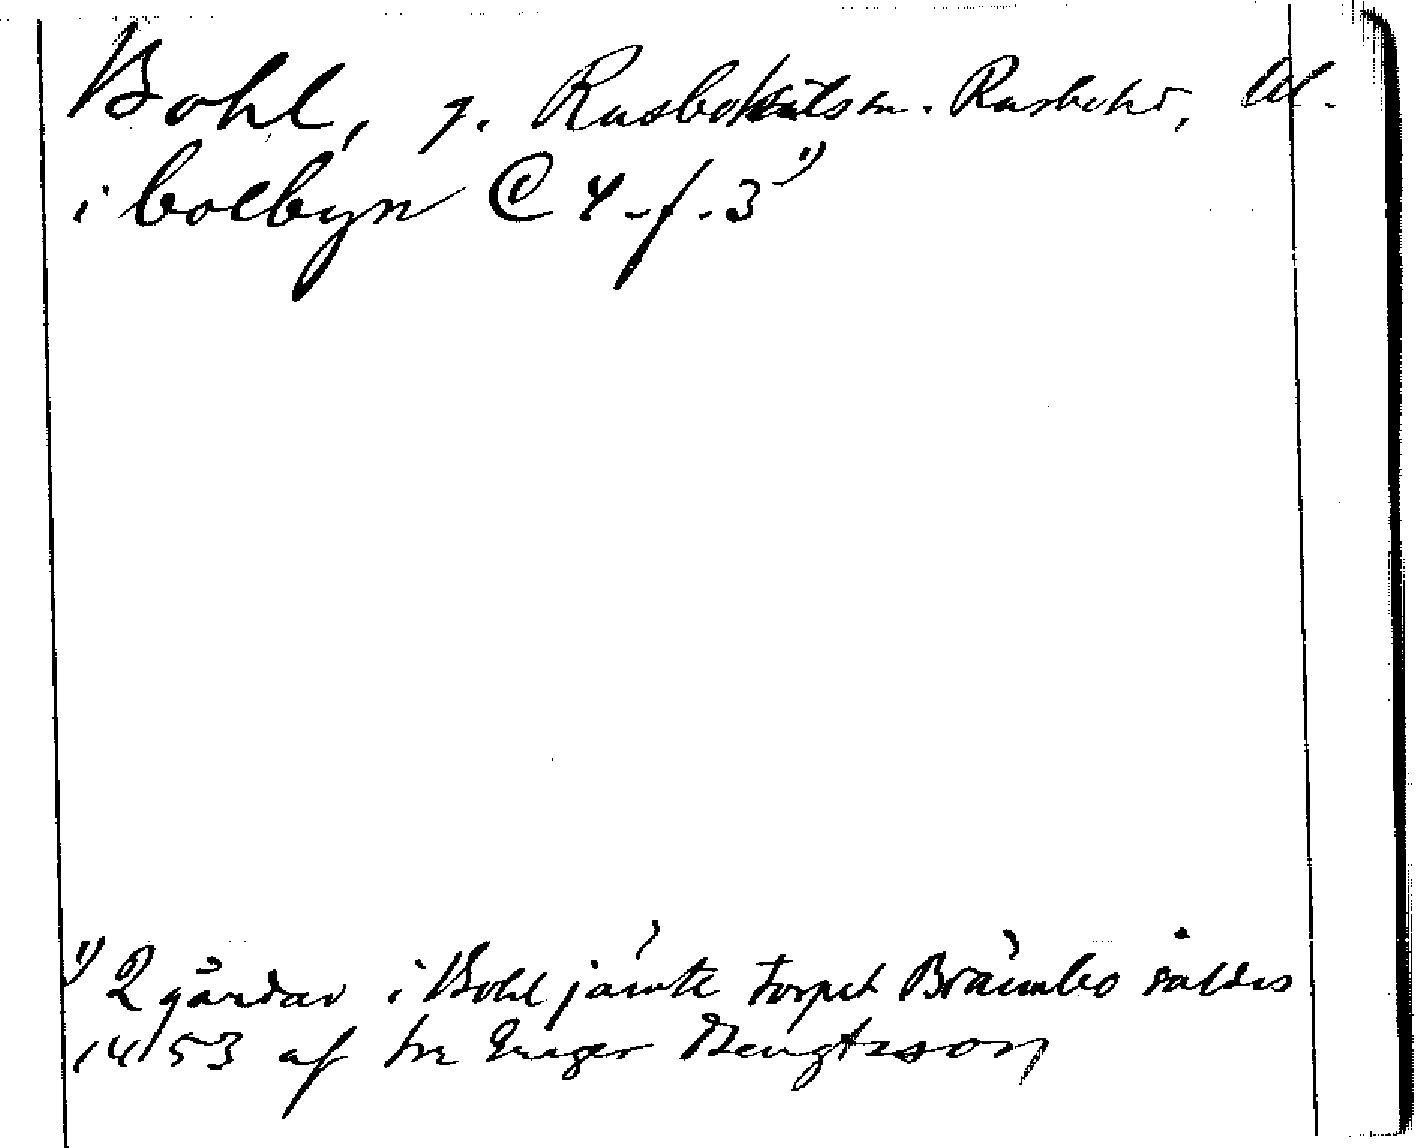 Bohl, g. Rasbokils sn. Rasbo hd, Ul.
i bolbyn C 4 - f. 3 1)
1) 2 gårdar i Bohl jämte torpet Brännbo såldes
1453 af hr Enger Bengtsson